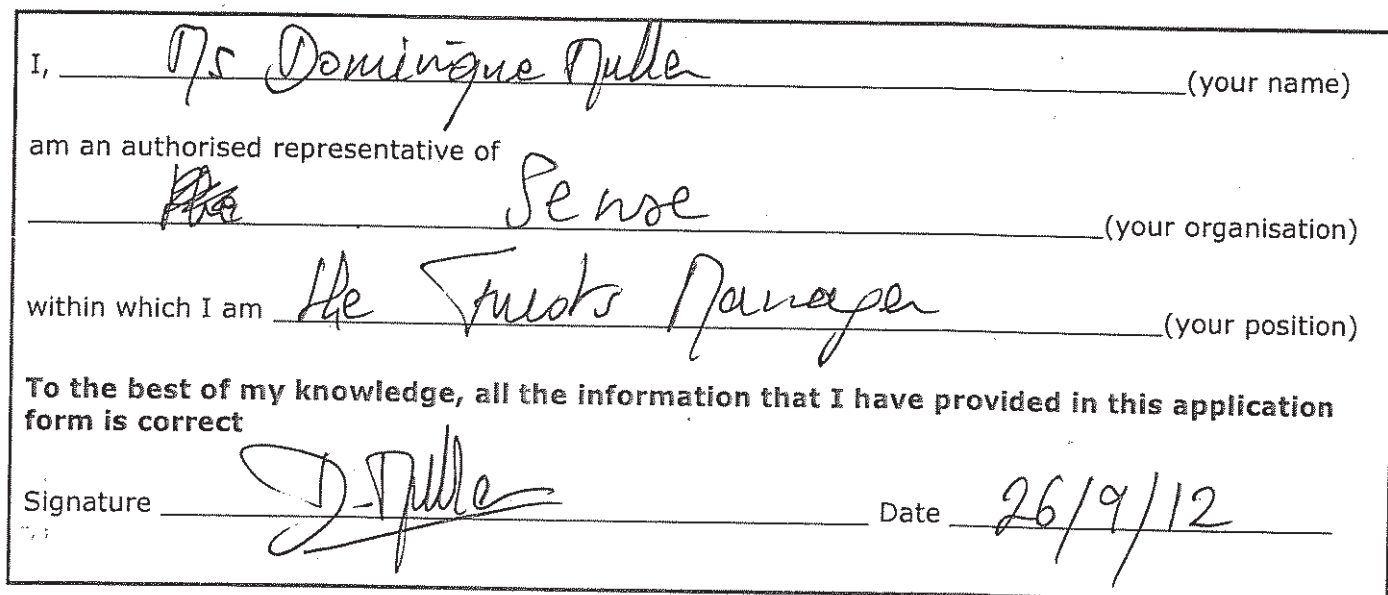 I, Ms Dominique Muller (your name)
am an authorised representative of
Sense (your organisation)
within which I am the Trusts Manager (your position)
To the best of my knowledge, all the information that I have provided in this application
form is correct
Signature D. Muller Date 26/9/12